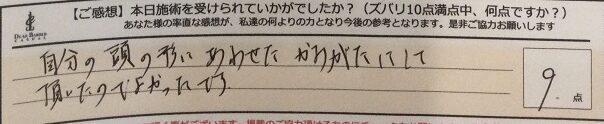 【ご感想】本日施術を受けられていかがでしたか?(ズバリ10点満点中、何点ですか?)
あなた様の率直な感想が、私達の何よりの力となり今後の参考となります。是非ご協力お願いします
DEAR BARBER
CASUAL
自分の頭の形にあわせたかみがたにして
頂いたのでよかったです
9点